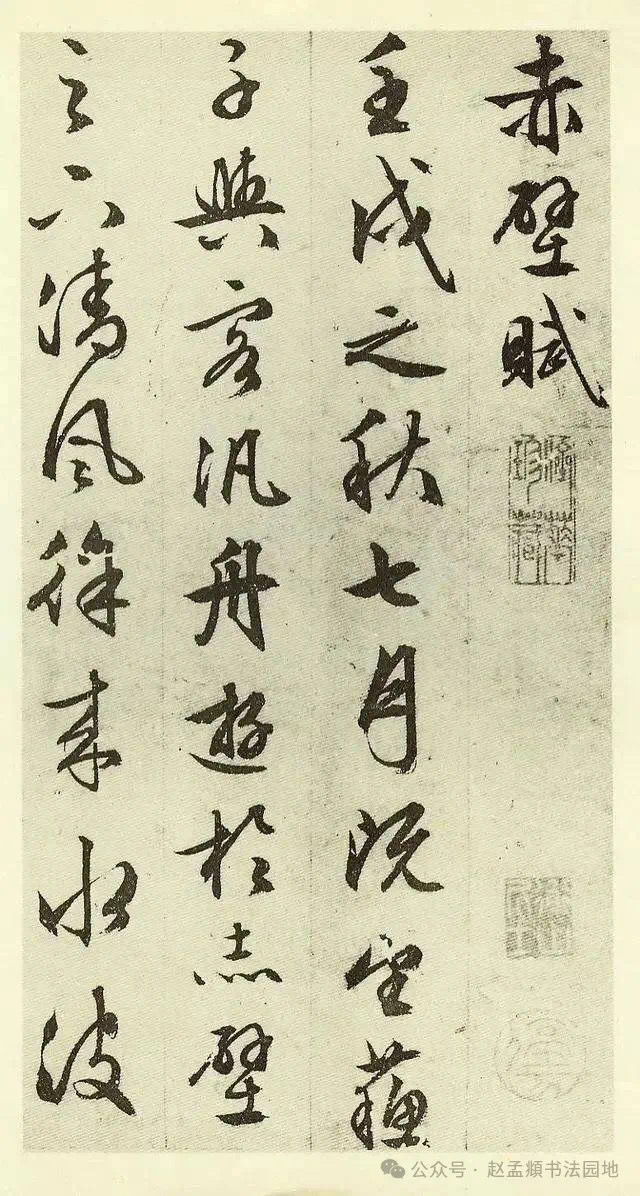 赤壁賦
壬戌之秋七月既望蘇
子與客汎舟遊於赤壁
之下清風徐來水波
公众号 · 赵孟頫书法园地